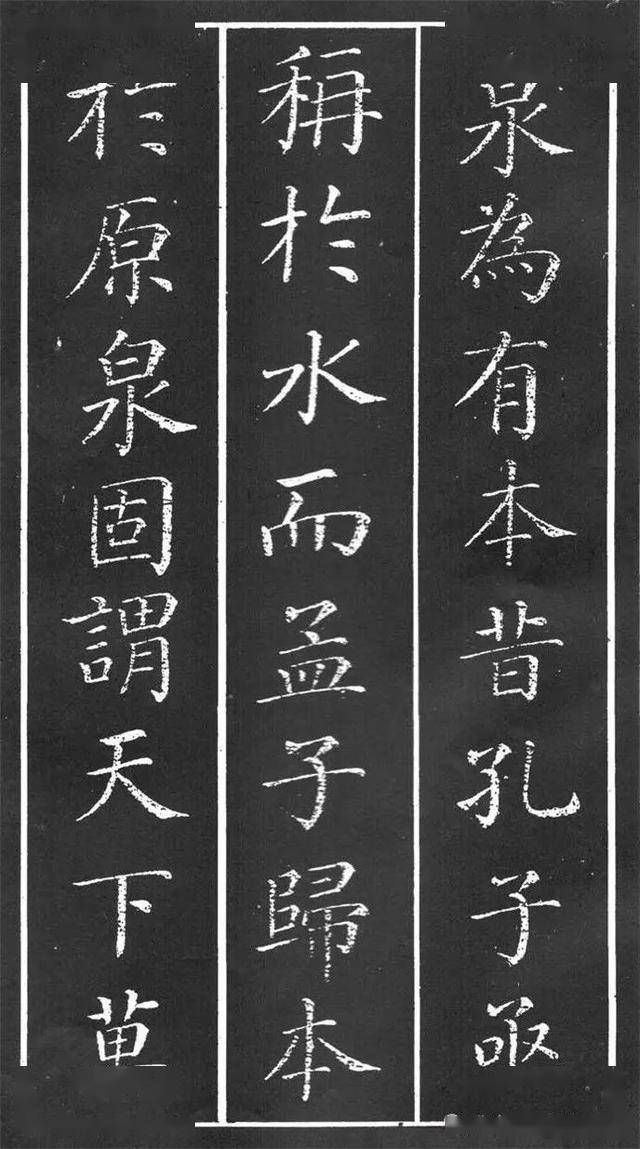 泉為有本昔孔子亟
稱於水而孟子歸本
於原泉固謂天下